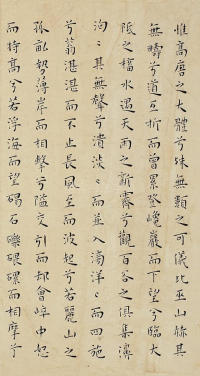 惟高唐之大體兮殊無類之可儀比巫山赫其
無疇兮道互折而曾累登巉巖而下望兮臨大
阺之稸水遇天雨之新霽兮觀百谷之俱集濞
洶〻其無聲兮潰淡〻而並入滂洋〻而四施
兮蓊湛湛而不止長風至而波起兮若麗山之
孤畝勢薄岸而相擊兮隘交引而却會崒中怒
而特高兮若浮海而望碣石礫磥磥而相摩兮